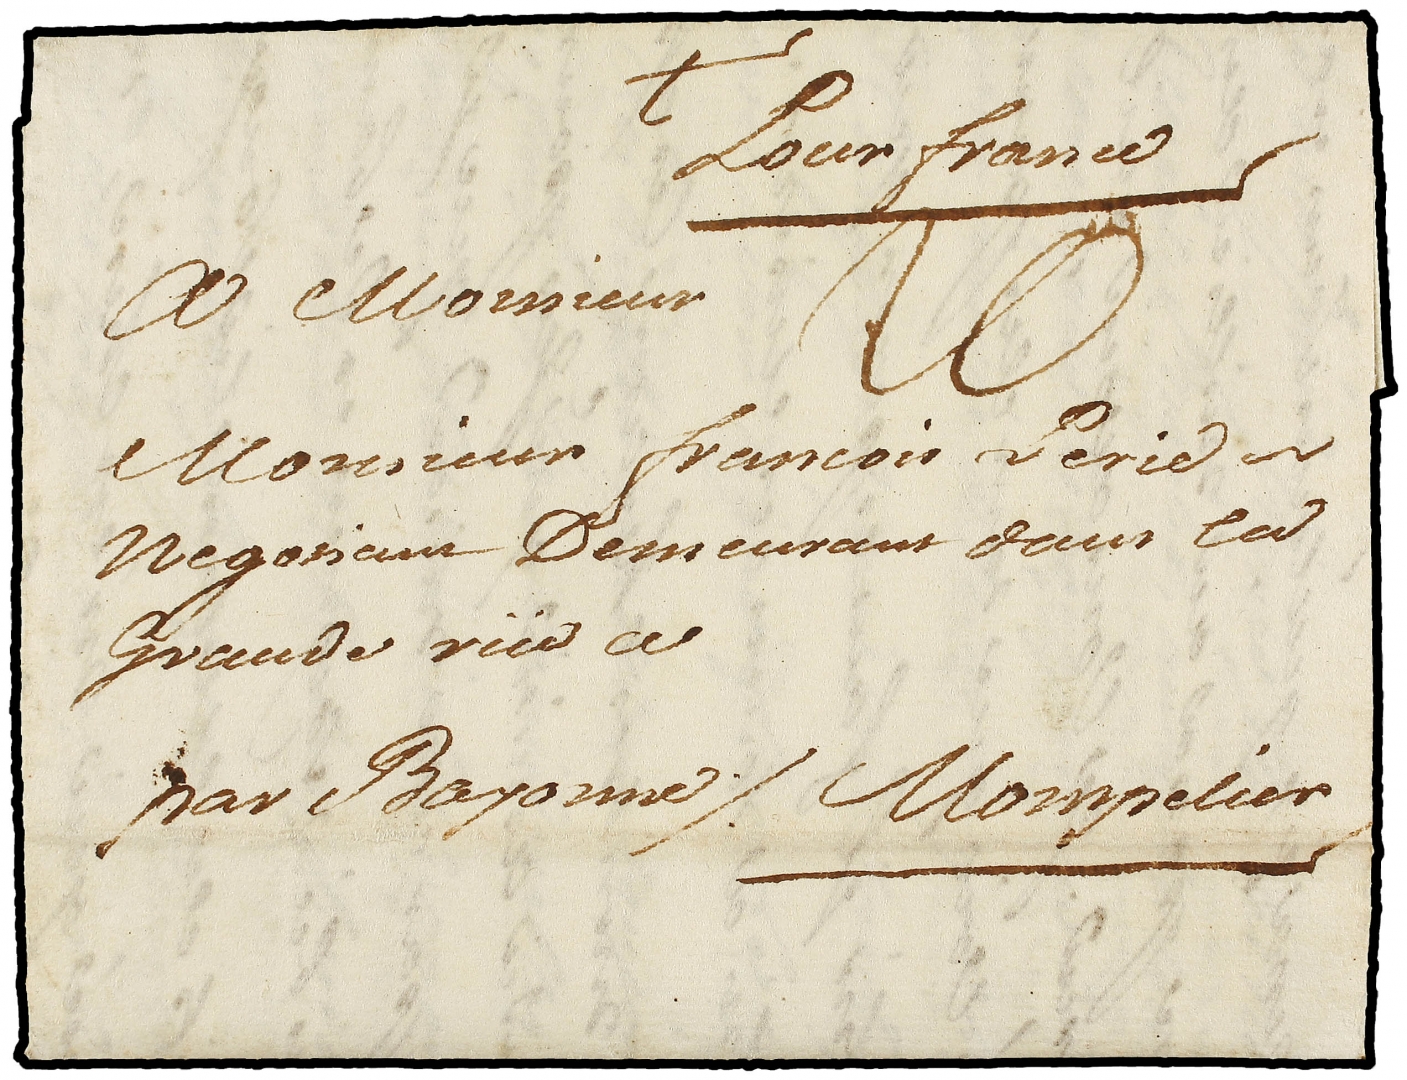 t
Pour france
A Monsieur
Monsieur francois Perie
Negosiant Demeurant dans la
Grande rüe a
par Bayonne /. Mompelier